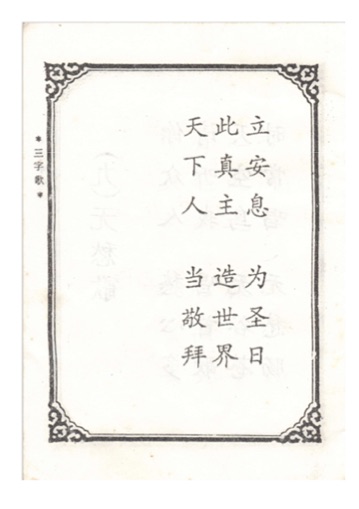 立安息 为圣日
此真主 造世界
天下人 当敬拜
*三字歌*